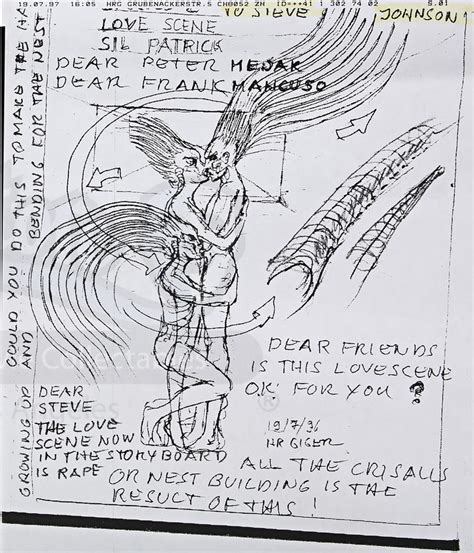 19.07.97 16:05 HRG GRUBENACKERSTR.5 CH8052 ZH ID=++41 1 302 74 02 S.01
TO STEVE JOHNSON!
LOVE SCENE
SIL PATRICK
DEAR PETER MEJAK
DEAR FRANK MANCUSO
COULD YOU DO THIS TO MAKE THE
GROWING UP AND BENDING FOR THE NEST
DEAR FRIENDS
IS THIS LOVESCENE
OK! FOR YOU ?
19/7/96
HR GIGER
DEAR
STEVE
THE LOVE
SCENE NOW
IN THE STORYBOARD
IS RAPE
ALL THE CRISALLS
OR NEST BUILDING IS THE
RESULT OF THIS !